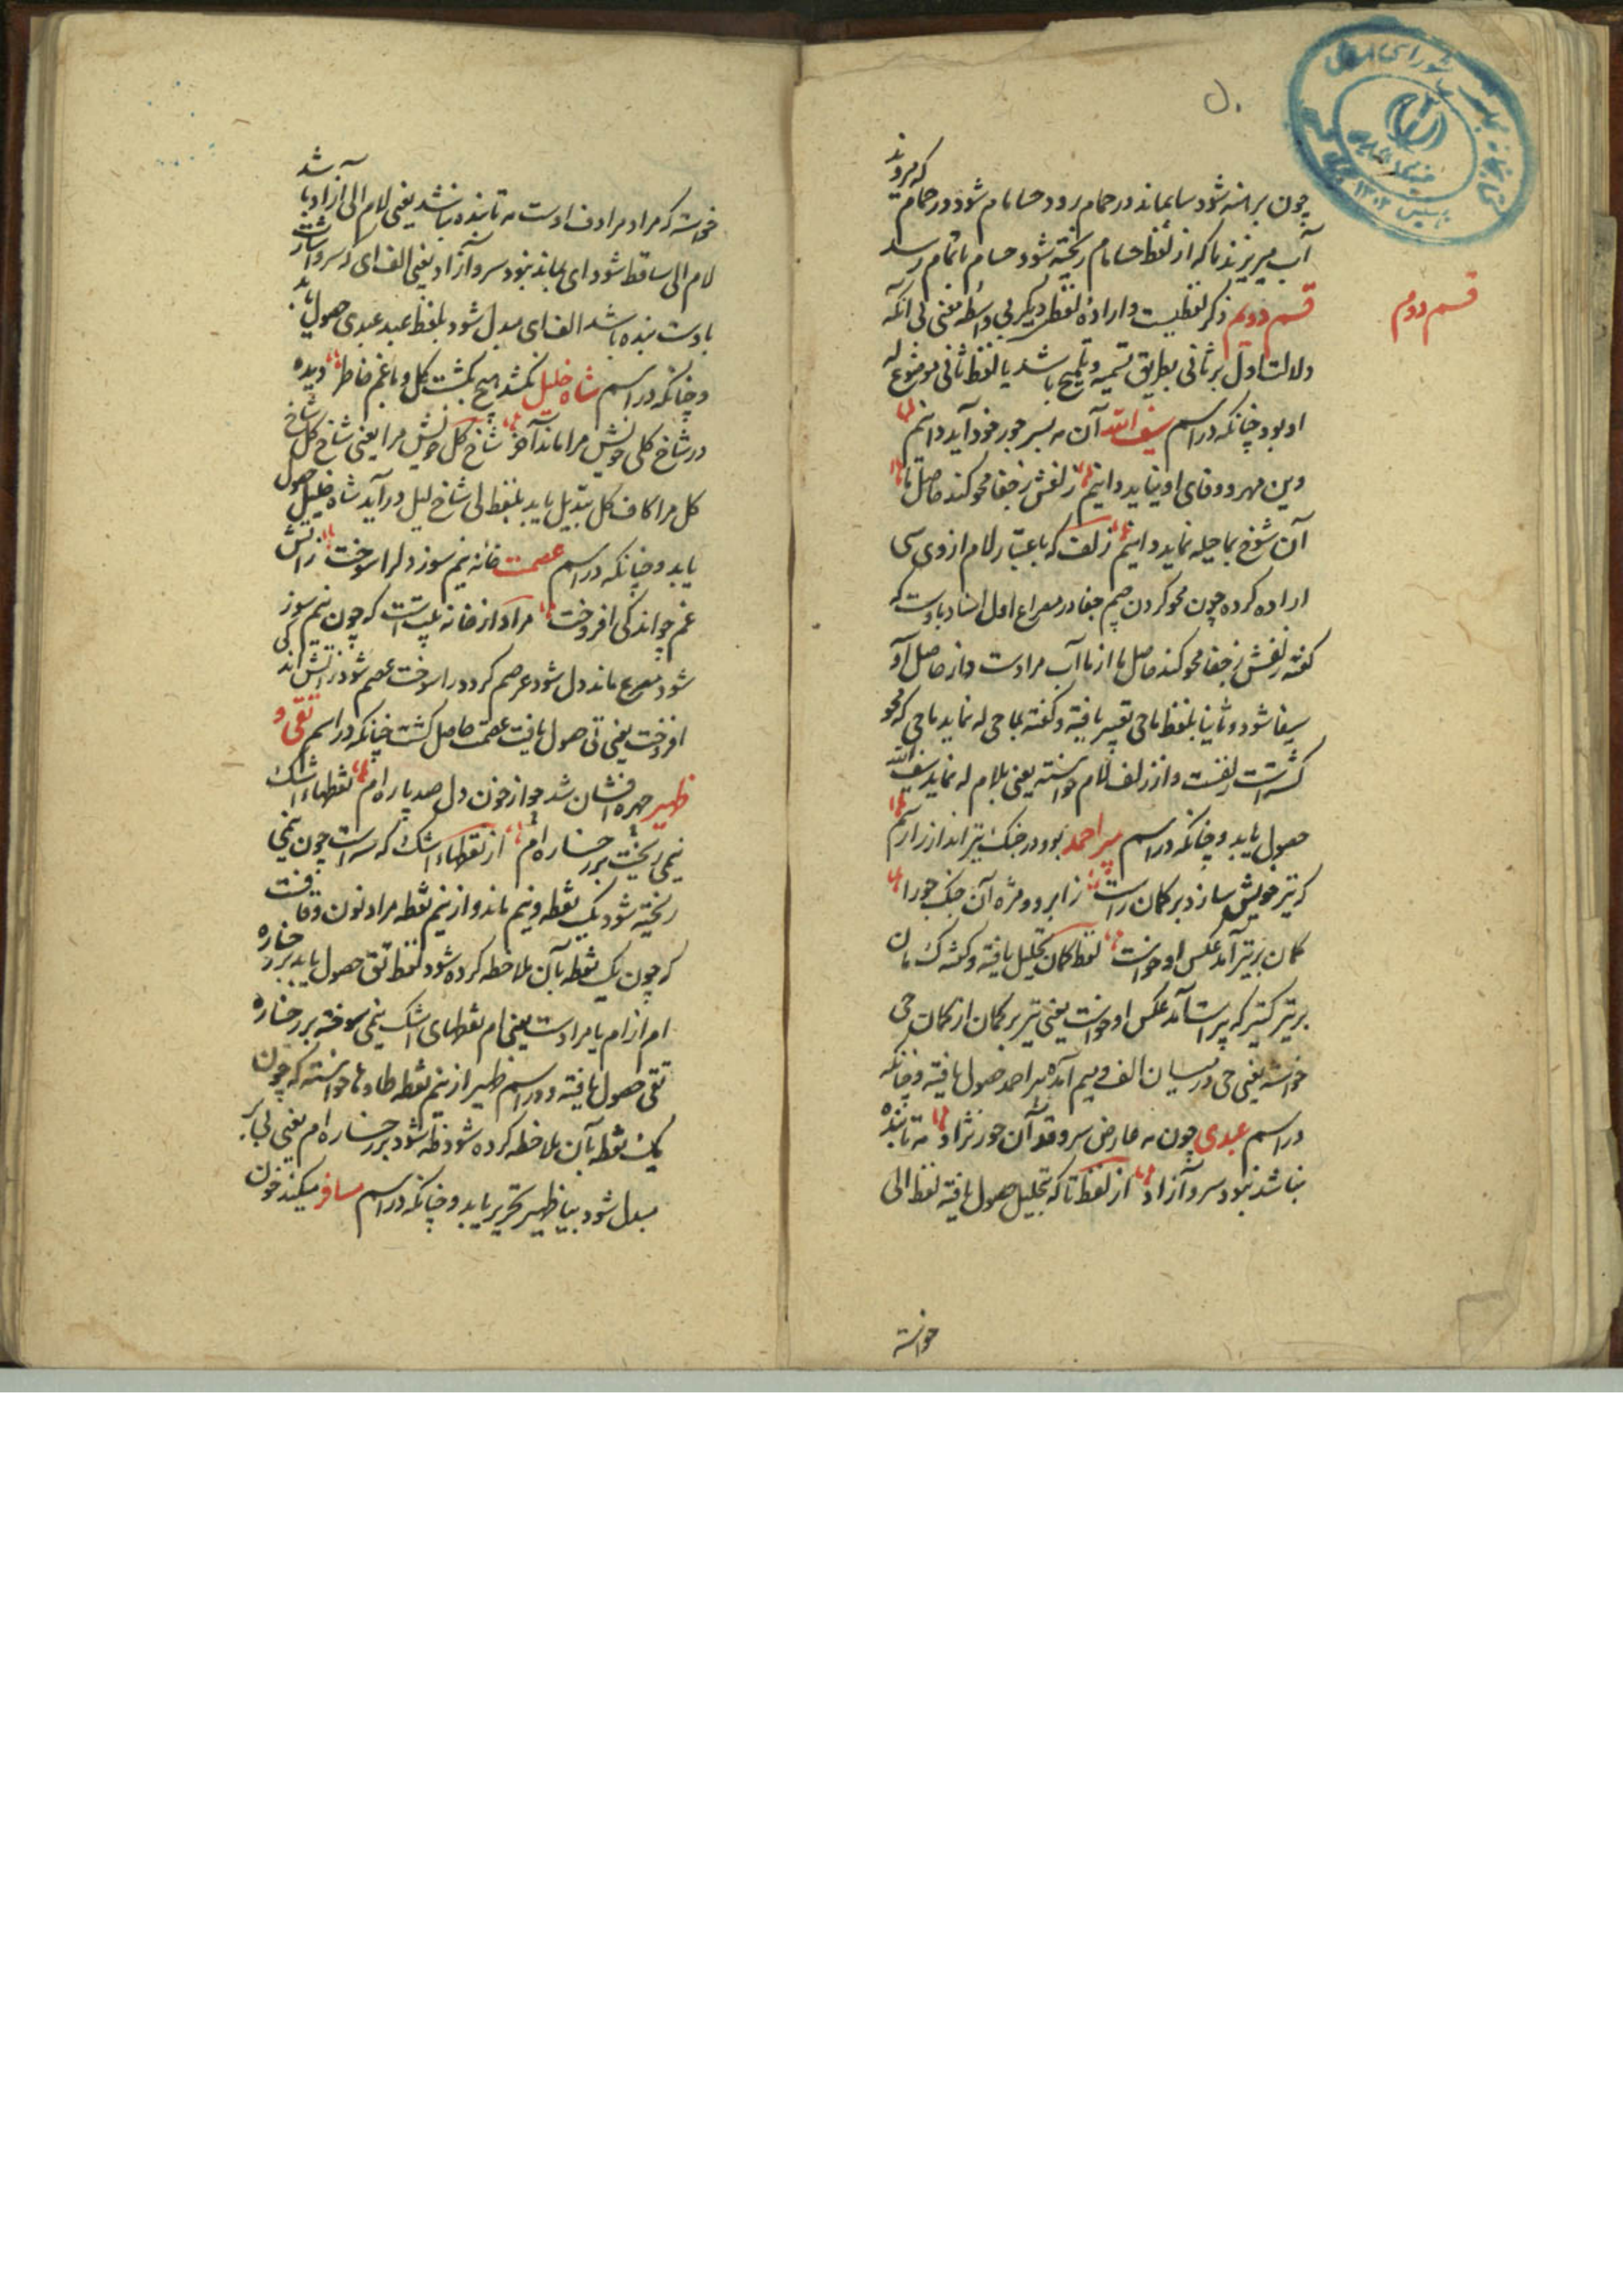 چون برهنه شود سا بماند در حمام رود حسامام شود در حمام که میروند
آب میریزند ما که از لفظ حسامام ریخته شود حسام باتمام رسد
قسم دویم ذکر لفظیست و اراده لفظ دیگر بی واسطه معنی بی آنکه
قسم دوم
دلالت اول بر ثانی بطریق تسمیه و تلمیح باشد یا لفظ ثانی موضوع له
او بود چنانکه در اسم سیف الله آن مه بسر جور خود آید دانم
وین مهر و وفای او نپاید دانم زلفش ز جفا محو کند حاصل ما
آن شوخ بما حیله نماید دانم زلف که باعتبار لام از وی سی
اراده کرده چون محو کردن جیم جفا در مصراع اول اسناد باوست که
گفته زلفش ز جفا محو کند حاصل ما از ما آب مرادست و از حاصل او
سیفا شود و ثانیا بلفظ ماحی تعبیر یافته و گفته بماحی له نماید ماحی که محو
کننده است زلفست و از زلف لام خواسته یعنی بلام له نماید سیف الله
حصول یابد و چنانکه در اسم میر احمد بود در جنک تیرانداز زارم
که تیر خویش سازد بر کمان راست ز ابرو و مژه آن جنک جو را
کمان بر تیر آمد عکس او خواست لفظ کمان تحلیل یافته و گفته ک مان
بر تیر ک تیر که پیراست آمد عکس او خواست یعنی تیر بر کمان از کمان حی
خواسته یعنی حی در میان الف و میم آمده میر احمد حصول یافته و چنانکه
در اسم عبدی چون مه عارض سرو قد آن حور نژاد مه تابنده
نباشد نبود سرو آزاد از لفظ تا که بتحلیل حصول یافته لفظ الی
خواسته
خواسته که مراد مرادف اوست مه تا بنده نباشد یعنی لام الی از اد با
لام الی ساقط شود ای بماند نبود سرو آزاد یعنی الف ای که سرو اشارت
باوست بنده باشد الف ای مبدل شود بلفظ عبد عبدی حصول یابد
و چنانکه در اسم شاه خلیل نکشد هیچ بکشت گل و باغم خاطر دیده
در شاخ گلی خویش مرا ماند آخر شاخ گل خویش مرا یعنی شاخ گل شاخ
گل مرا کاف گل تبدیل یابد بلفظ لی شاخ لیل در آید شاه خلیل حصول
یابد و چنانکه در اسم عصمت خانه نیم سوز دلرا سوخت زاتش
غم چو اندکی افروخت مراد از خانه بیت است که چون نیم سوز
شود مصرع ماند دل شود عرصم گردد را سوخت عصم شود زاتش اندکی
افروخت یعنی تی حصول یافت عصمت حاصل گشت چنانکه در اسم تقی و
ظهیر چهره افشان شد چو از خون دل صد پاره ام نقطهاء اشک
نیمی ریخت بر رخساره ام از نقطهاء اشک که سه است چون نیمی
ریخته شود یک نقطه و نیم ماند و از نیم نقطه مراد نون و قافست
که چون یک نقطه بآن ملاحظه کرده شود لفظ تق حصول یابد بر رخساره
ام از ام یا مرادست یعنی ام نقطهای اشک نیمی سوخته بر رخساره
تقی حصول یافته و در اسم ظهیر از نیم نقطه طا و ها خواسته که چون
یک نقطه بآن ملاحظه کرده شود ظه شود بر رخساره ام یعنی بی بر
مبدل شود بیا ظهیر تحریر یابد و چنانکه در اسم مسافر میکند خون